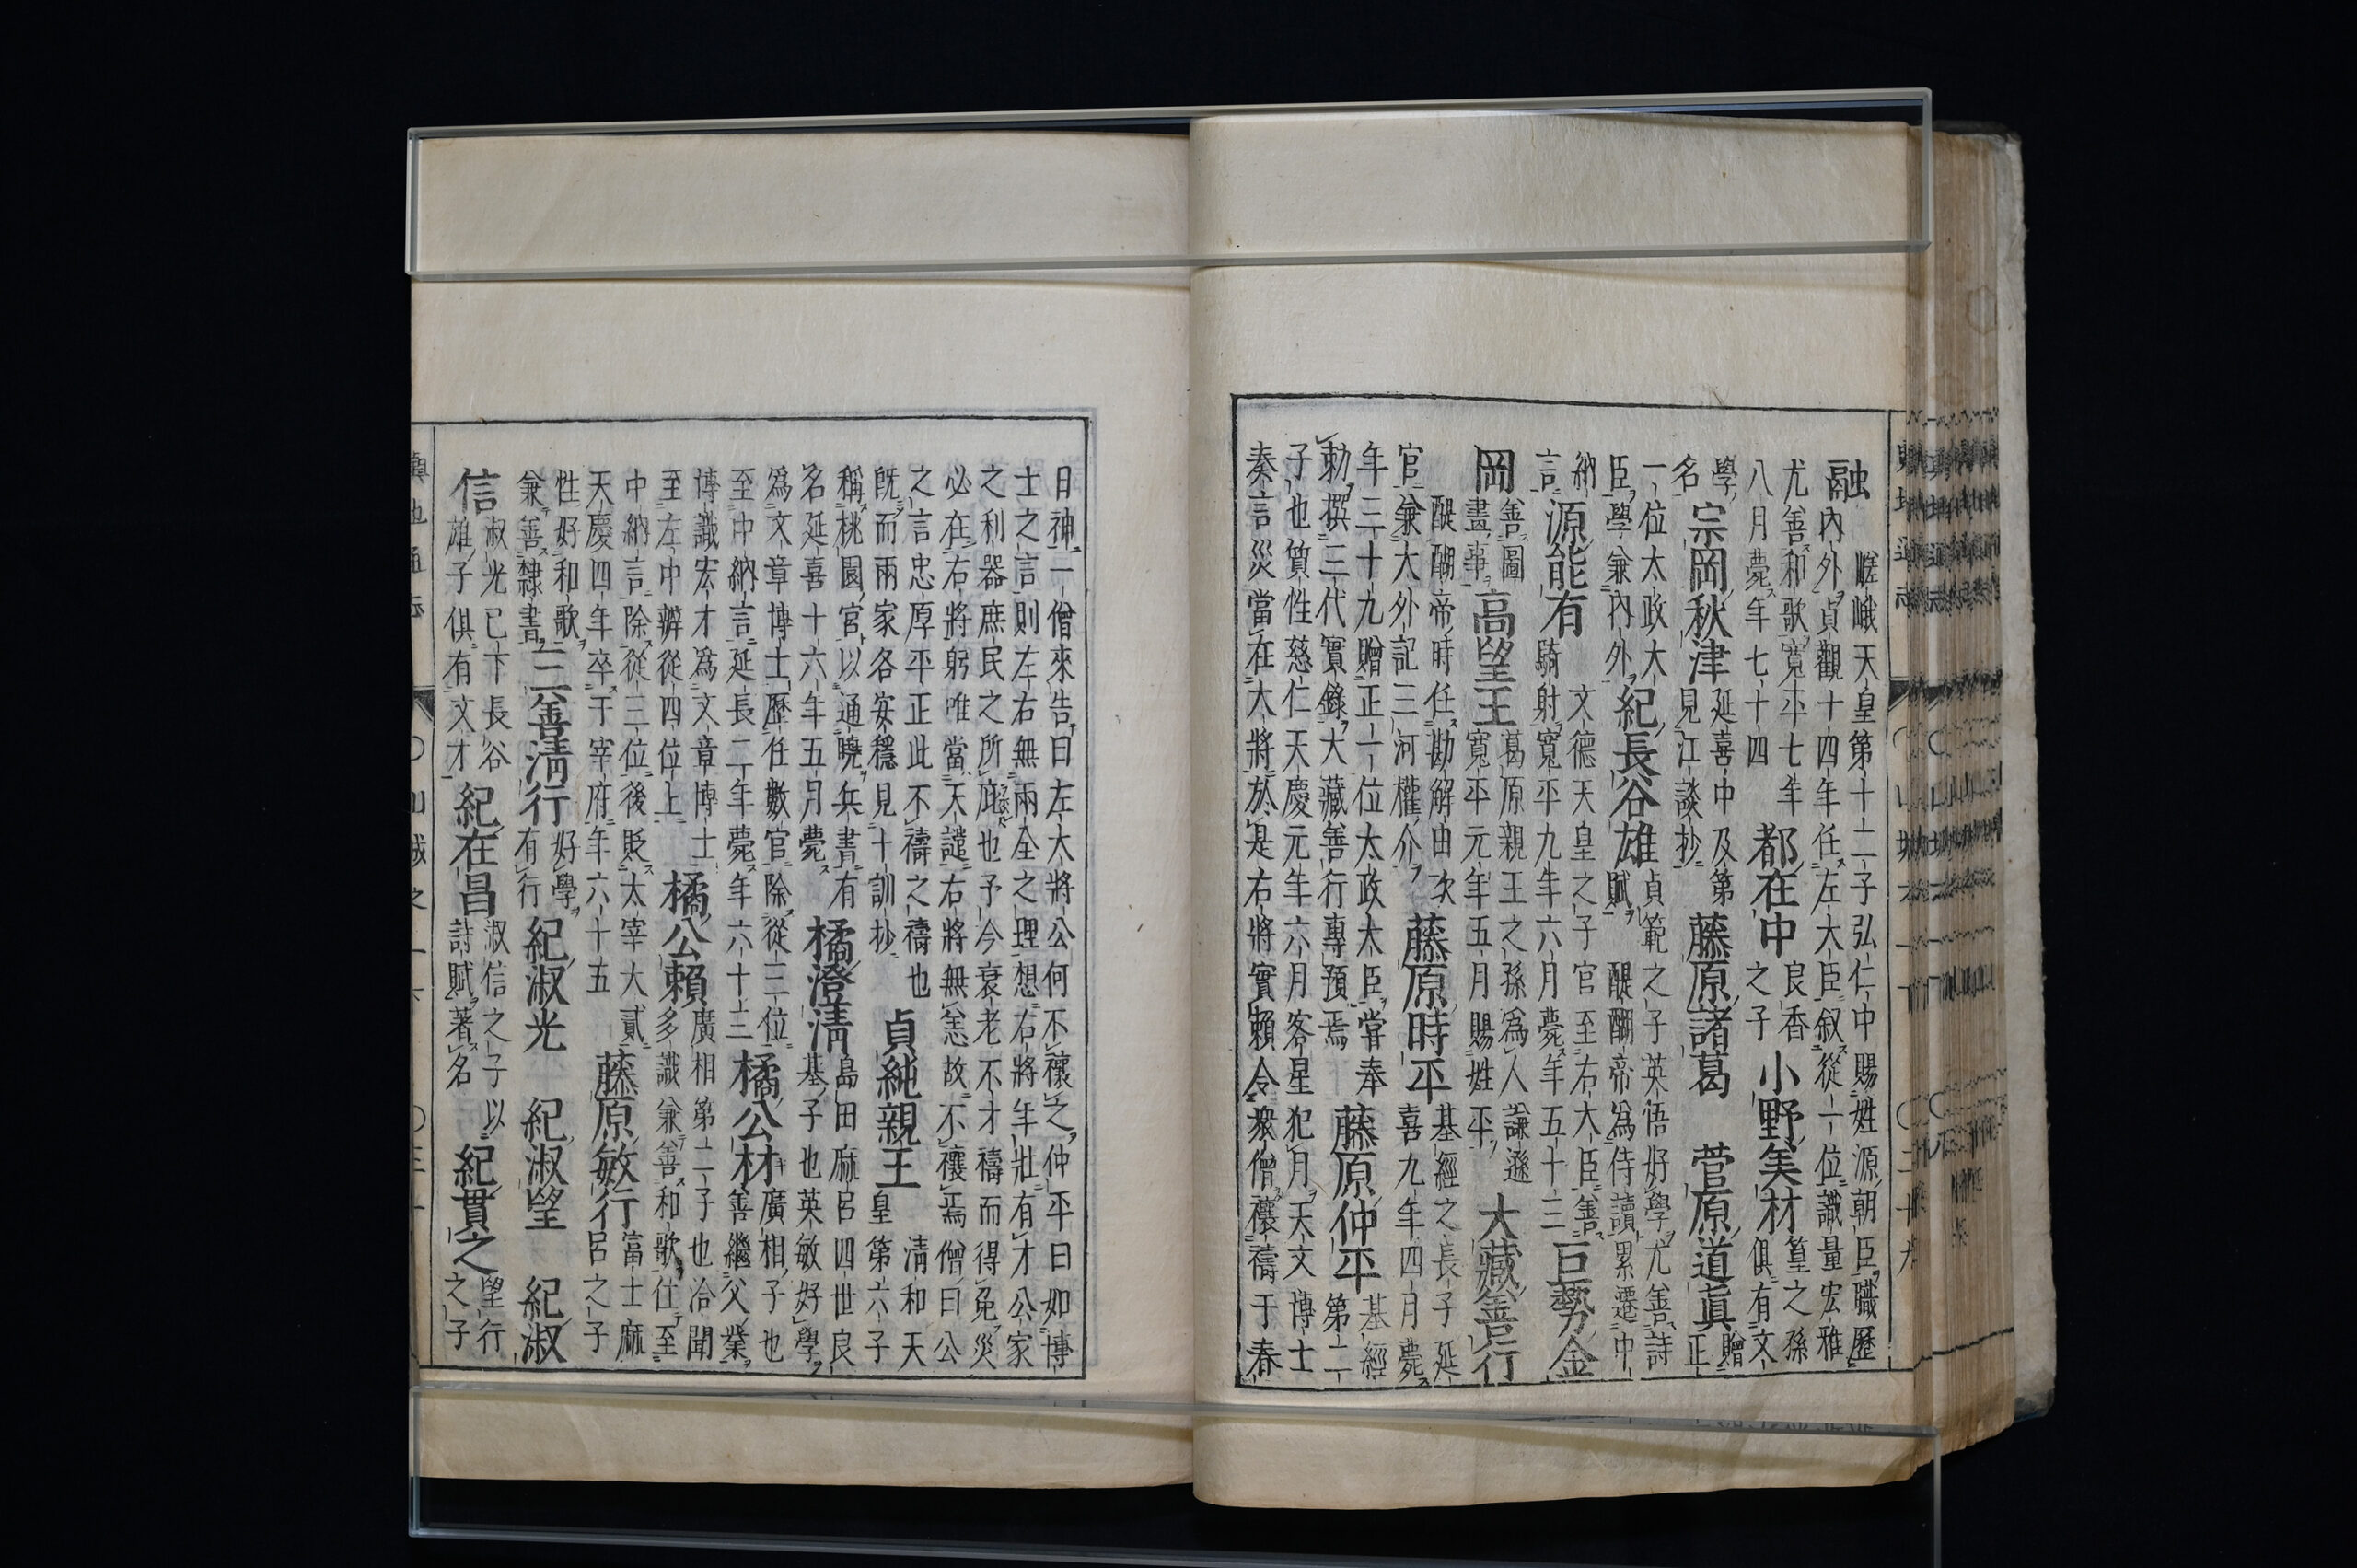 融
嵯峨天皇第十二子弘仁中賜姓源朝臣職歷
內外貞觀十四年任左大臣叙從一位識量宏雅
尤善和歌寛平七年
八月薨年七十四
都在中
良香
之子
小野美材
篁之孫
俱有文
學
名
宗岡秋津
延喜中及第
見江談抄
藤原諸葛
菅原道眞
贈
正
一位太政大
臣學兼內外
紀長谷雄
貞範之子英悟好學尤善詩
賦醍醐帝爲侍讀累遷中
納
言
源能有
文德天皇之子官至右大臣善
騎射寛平九年六月薨年五十三
巨勢金
岡
善圖
畫事
高望王
葛原親王之孫爲人謙遜
寛平元年五月賜姓平
大藏善行
醍醐帝時任勘解由次
官兼大外記三河權介
藤原時平
基經之長子延
喜九年四月薨
年三十九贈正一位太政大臣嘗奉
勅撰三代實錄大藏善行專預焉
藤原仲平
基經
第二
子也質性慈仁天慶元年六月客星犯月天文博士
奏言災當在大將於是右將實賴令僧禳禱于春
日神一僧來告曰左大將公何不禳之仲平曰如博
士之言則左右無兩全之理想右將年壯有才公家
之利器庶民之所庇也予今衰老不才禱而得免災
必在右將躬唯當天譴右將無恙故不禳焉僧曰公
之言忠厚平正此不禱之禱也
既而兩家各安穩見十訓抄
貞純親王
清和天
皇第六子
稱桃園宮以通曉兵書有
名延喜十六年五月薨
橘澄清
島田麻呂四世良
基子也英敏好學
爲文章博士歷任數官除從三位
至中納言延長二年薨年六十三
橘公材
廣相子也
善繼父業
博識宏才爲文章博士
至左中辨從四位上
橘公賴
廣相第二子也洽聞
多識兼善和歌仕至
中納言除從三位後貶太宰大貳
天慶四年卒于宰府年六十五
藤原敏行
富士麻
呂之子
性好和歌
兼善隸書
三善淸行
好學
有行
紀淑光
紀淑望
紀淑
信
淑光已下長谷
雄子俱有文才
紀在昌
淑信之子以
詩賦著名
紀貫之
望行
之子